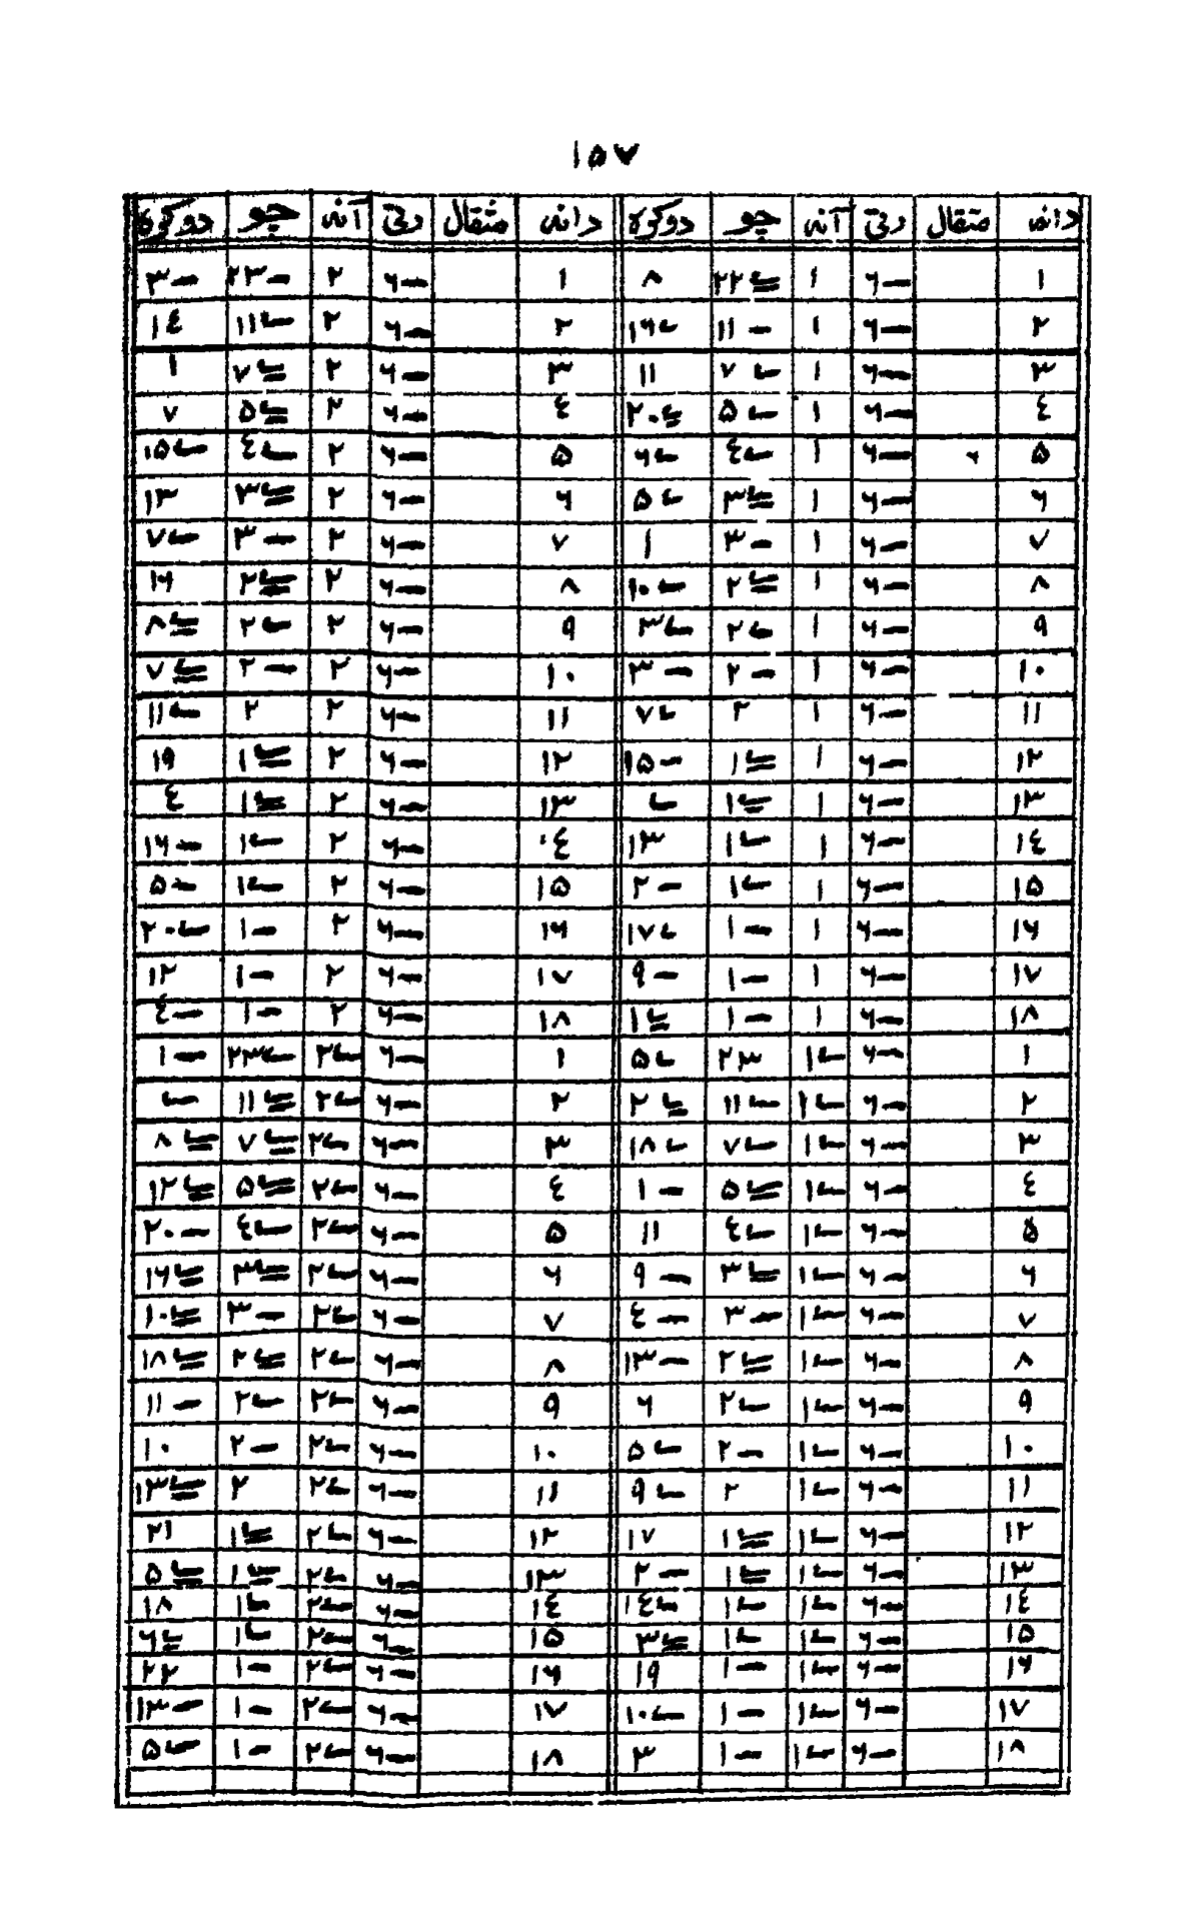 ۱۵۷
دانه مثقال رتی آنه چو دوکره دانه مثقال رتی آنه چو دوکره
۱ ۶- ۱ ۲۲ ۸ ۱ ۶- ۲ ۲۳- ۳-
۲ ۶- ۱ ۱۱- ۱۶ ۲ ۶- ۲ ۱۱ ۱٤
۳ ۶- ۱ ۷ ۱۱ ۳ ۶- ۲ ۷ ۱
٤ ۶- ۱ ۵ ۲۰ ٤ ۶- ۲ ۵ ۷
۵ ۶- ۱ ٤ ۶ ۵ ۶- ۲ ٤ ۱۵
۶ ۶- ۱ ۳ ۵ ۶ ۶- ۲ ۳ ۱۳
۷ ۶- ۱ ۳- ۱ ۷ ۶- ۲ ۳- ۷
۸ ۶- ۱ ۲ ۱۰ ۸ ۶- ۲ ۲ ۱۶
۹ ۶- ۱ ۲ ۳ ۹ ۶- ۲ ۲ ۸
۱۰ ۶- ۱ ۲- ۳- ۱۰ ۶- ۲ ۲- ۷
۱۱ ۶- ۱ ۲ ۷ ۱۱ ۶- ۲ ۲ ۱۱
۱۲ ۶- ۱ ۱ ۱۵- ۱۲ ۶- ۲ ۱ ۱۹
۱۳ ۶- ۱ ۱ ۱۳ ۶- ۲ ۱ ٤
۱٤ ۶- ۱ ۱ ۱۳ ۱٤ ۶- ۲ ۱ ۱۶-
۱۵ ۶- ۱ ۱ ۲- ۱۵ ۶- ۲ ۱ ۵-
۱۶ ۶- ۱ ۱- ۱۷ ۱۶ ۶- ۲ ۱- ۲۰
۱۷ ۶- ۱ ۱- ۹- ۱۷ ۶- ۲ ۱- ۱۲
۱۸ ۶- ۱ ۱- ۱ ۱۸ ۶- ۲ ۱- ٤-
۱ ۶- ۱ ۲۳ ۵ ۱ ۶- ۲ ۲۳ ۱-
۲ ۶- ۱ ۱۱ ۲ ۲ ۶- ۲ ۱۱
۳ ۶- ۱ ۷ ۱۸ ۳ ۶- ۲ ۷ ۸
٤ ۶- ۱ ۵ ۱- ٤ ۶- ۲ ۵ ۱۲
۵ ۶- ۱ ٤ ۱۱ ۵ ۶- ۲ ٤ ۲۰-
۶ ۶- ۱ ۳ ۹- ۶ ۶- ۲ ۳ ۱۶
۷ ۶- ۱ ۳- ٤- ۷ ۶- ۲ ۳- ۱۰
۸ ۶- ۱ ۲ ۱۳- ۸ ۶- ۲ ۲ ۱۸
۹ ۶- ۱ ۲ ۶ ۹ ۶- ۲ ۲ ۱۱-
۱۰ ۶- ۱ ۲- ۵ ۱۰ ۶- ۲ ۲- ۱۰
۱۱ ۶- ۱ ۲ ۹ ۱۱ ۶- ۲ ۲ ۱۳
۱۲ ۶- ۱ ۱ ۱۷ ۱۲ ۶- ۲ ۱ ۲۱
۱۳ ۶- ۱ ۱ ۲- ۱۳ ۶- ۲ ۱ ۵
۱٤ ۶- ۱ ۱ ۱٤ ۱٤ ۶- ۲ ۱ ۱۸
۱۵ ۶- ۱ ۱ ۳ ۱۵ ۶- ۲ ۱ ۶
۱۶ ۶- ۱ ۱- ۱۹ ۱۶ ۶- ۲ ۱- ۲۲
۱۷ ۶- ۱ ۱- ۱۰ ۱۷ ۶- ۲ ۱- ۱۳-
۱۸ ۶- ۱ ۱- ۳ ۱۸ ۶- ۲ ۱- ۵